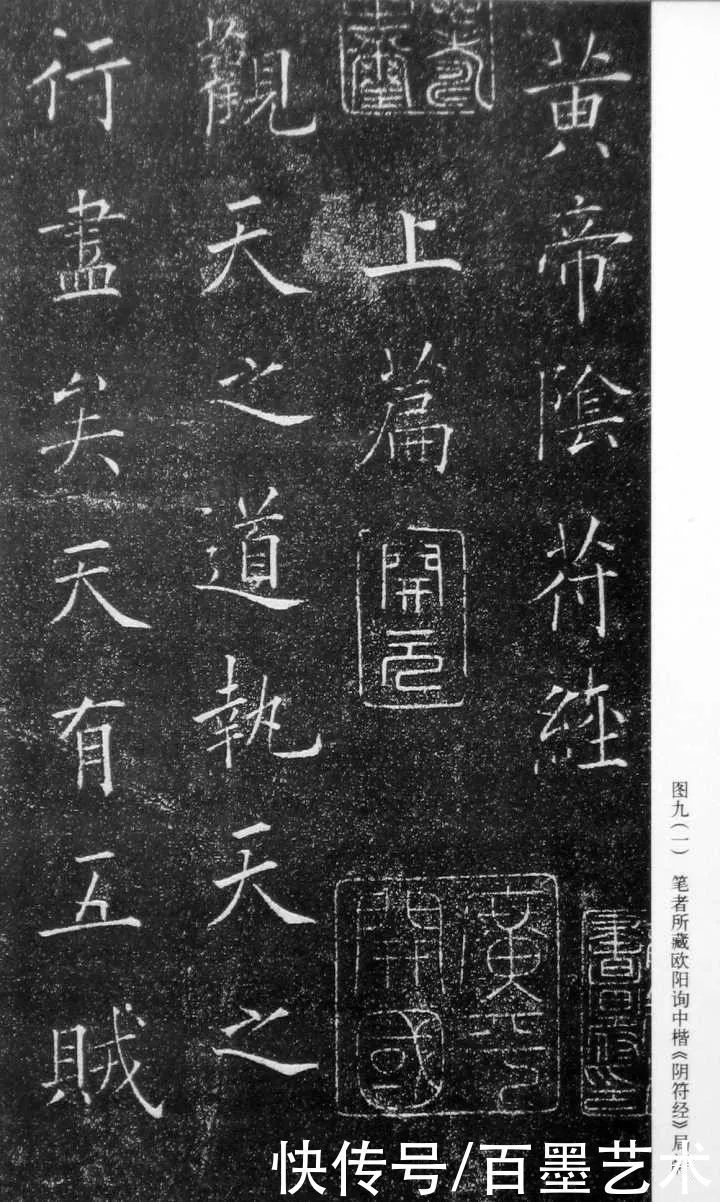 黄帝陰符經
上篇
開元
觀天之道執天之
行盡矣天有五賊
開國
图九(一) 笔者所藏欧阳询中楷《阴符经》局
快传号/百墨艺术